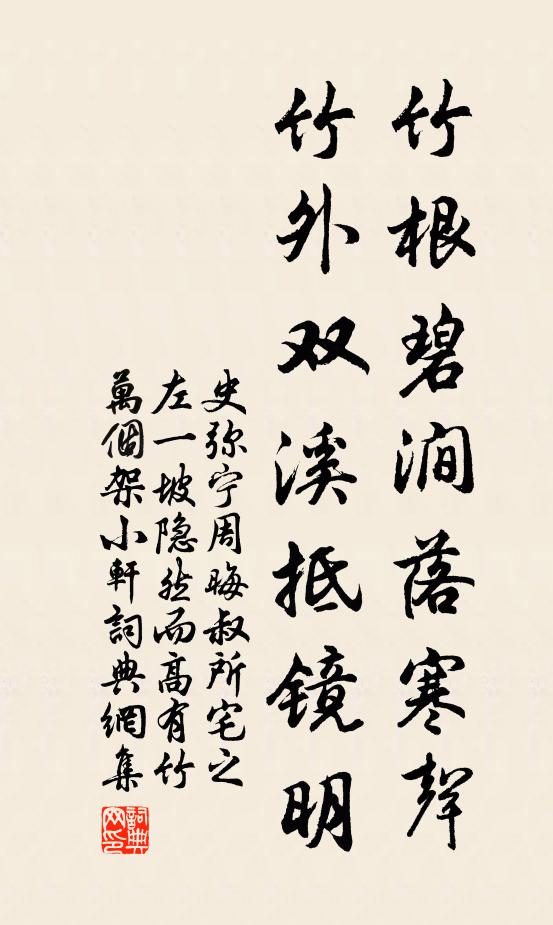 竹根碧涧落寒聲
竹外双溪抵镜明
史弥宁周晦叔所宅之
左一坡隐然而高有竹
萬個架小軒詞典網集
詞典
网印